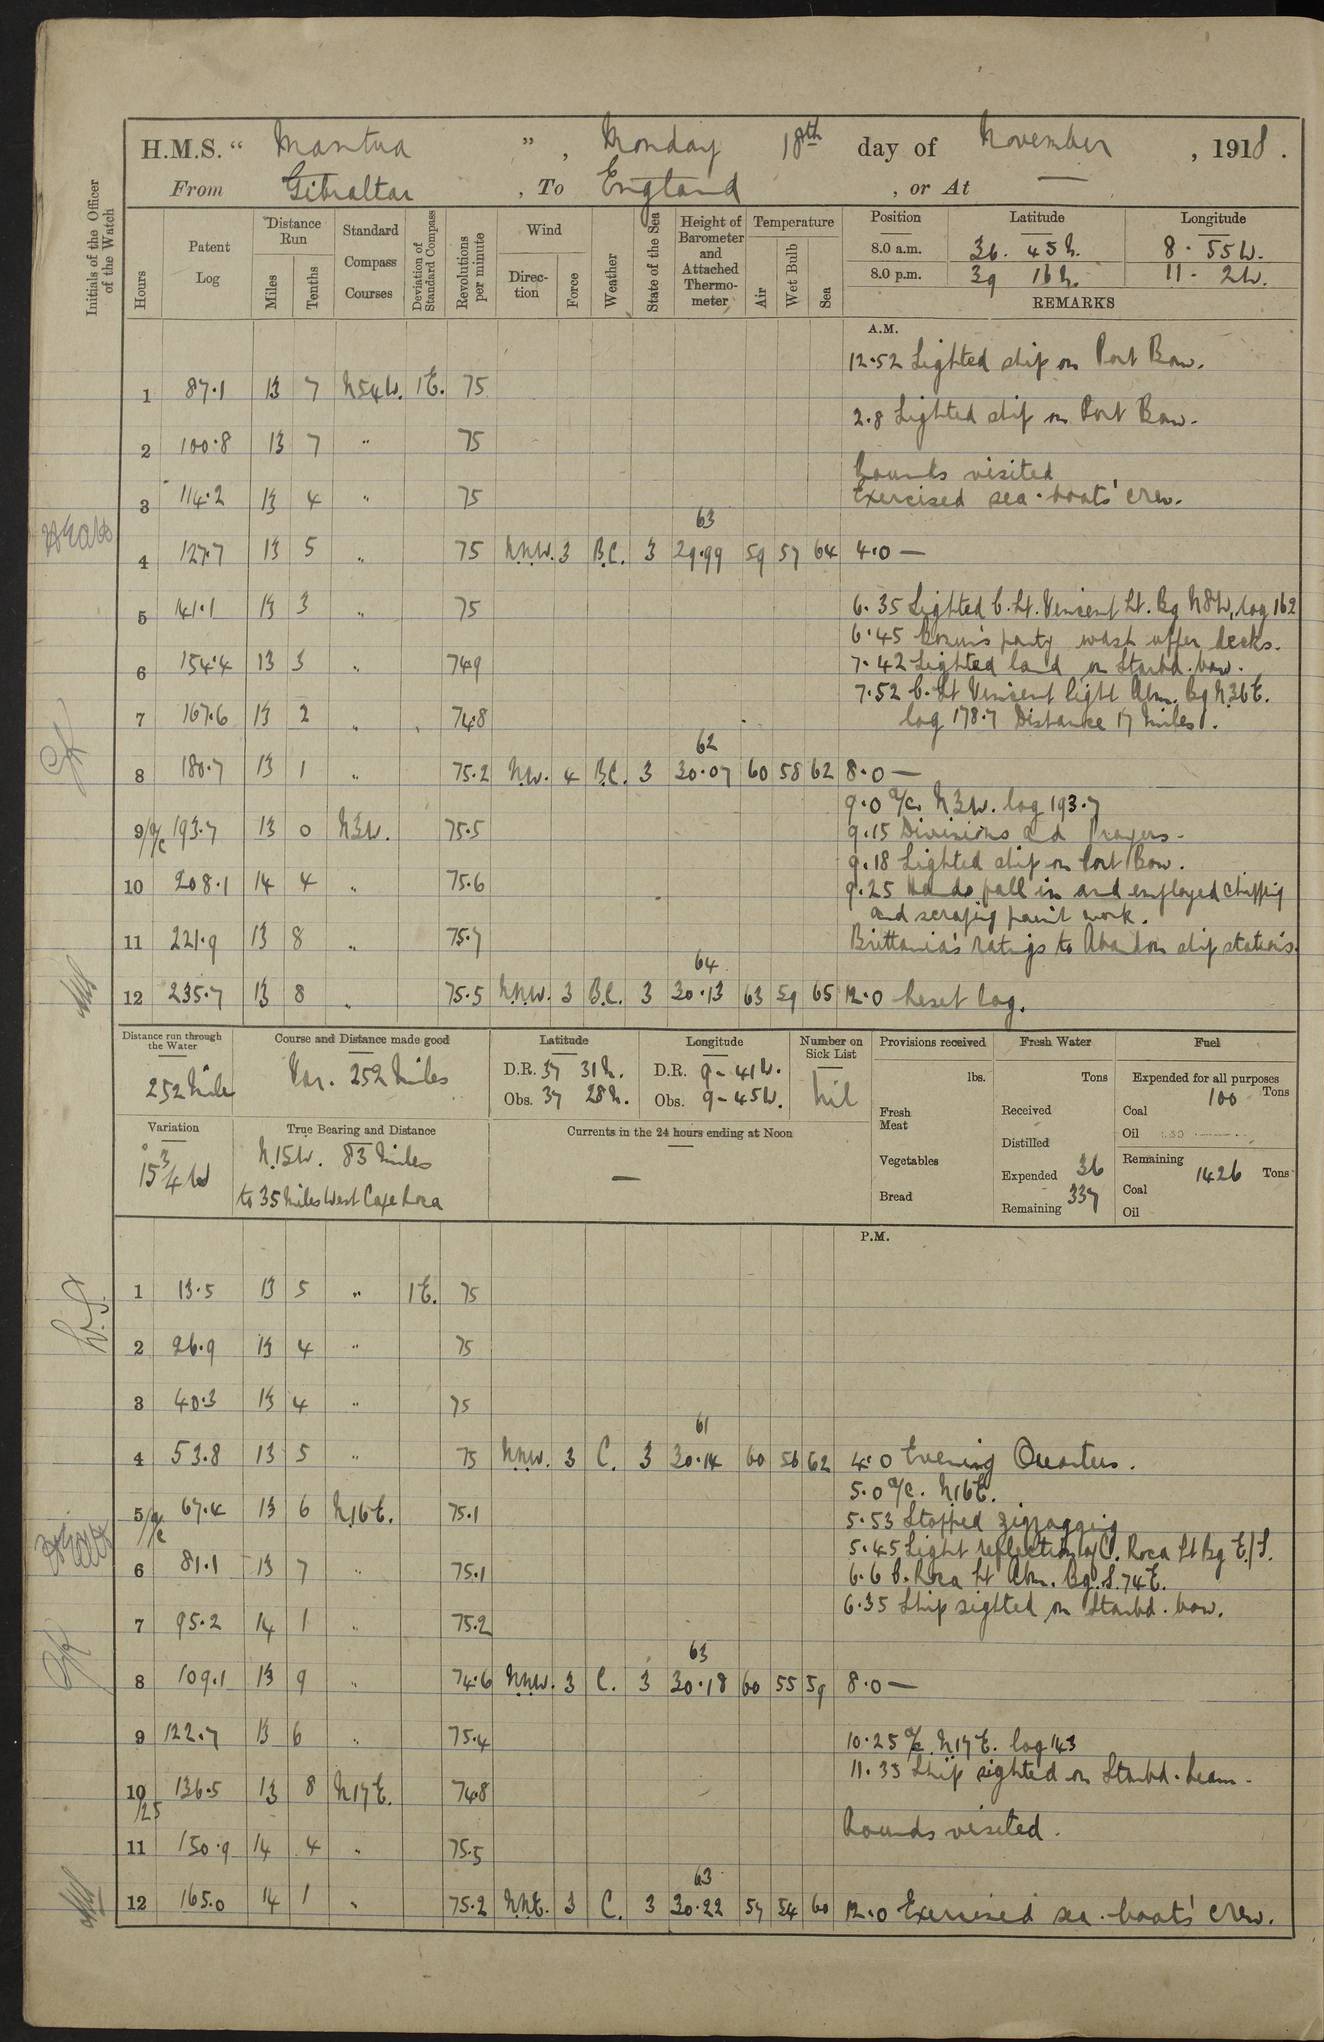 H.M.S. “ Mantua ” , Monday 18th day of November , 1918 .
From Gibraltar , To England , or At —
Initials of the Officer of the Watch
Hours
Patent Log
Distance Run
Miles
Tenths
Standard Compass Courses
Deviation of Standard Compass
Revolutions per minute
Wind
Direction
Force
Weather
State of the Sea
Height of Barometer and Attached Thermometer
Temperature
Air
Wet Bulb
Sea
Position Latitude Longitude
8.0 a.m. 36. 45 N. 8 · 55 W.
8.0 p.m. 39 16 N. 11 - 2 W.
REMARKS
A.M.
12·52 Sighted ship on Port Bow.
1 87·1 13 7 N54W. 1E. 75
2·8 Sighted ship on Port Bow.
2 100·8 13 7 " 75
Rounds visited
3 114·2 13 4 " 75 Exercised sea-boats' crew.
63
4 127·7 13 5 " 75 N.N.W. 3 B.C. 3 29·99 59 57 64 4·0 —
5 141·1 13 3 " 75 6·35 Sighted C. St. Vincent Lt. Bg N8W, log 162
6·45 Bosun's party wash upper decks.
6 154·4 13 3 " 74·9 7·42 Sighted land on Starbd. bow.
7·52 C. St Vincent light Abm. Bg N36E.
7 167·6 13 2 " 74·8 log 178·7 Distance 17 miles.
62
8 180·7 13 1 " 75·2 N.W. 4 B.C. 3 30·07 60 58 62 8·0 —
9·0 a/c. N3W. log 193·7
9/a/c 193·7 13 0 N3W. 75·5 9·15 Divisions and Prayers.
9·18 Sighted ship on Port Bow.
10 208·1 14 4 " 75·6 9·25 Hands fall in and employed chipping
and scraping paint work.
11 221·9 13 8 " 75·7 Brittania's ratings to Abandon ship stations.
64
12 235·7 13 8 " 75·5 N.N.W. 3 B.C. 3 30·13 63 59 65 12·0 Reset log.
Distance run through the Water
252 Mile
Course and Distance made good
Var. 252 Miles
Latitude
D.R. 37 31 N.
Obs. 37 28 N.
Longitude
D.R. 9 - 41 W.
Obs. 9 - 45 W.
Number on Sick List
Nil
Provisions received
lbs.
Fresh Meat
Vegetables
Bread
Fresh Water
Tons
Received
Distilled
Expended 36
Remaining 337
Fuel
Expended for all purposes
100 Tons
Coal
Oil
Remaining
1426 Tons
Coal
Oil
Variation
15° 3/4 W
True Bearing and Distance
N.15W. 83 Miles
to 35 Miles West Cape Roca
Currents in the 24 hours ending at Noon
—
P.M.
1 13·5 13 5 " 1E. 75
2 26·9 13 4 " 75
3 40·3 13 4 " 75
61
4 53·8 13 5 " 75 N.N.W. 3 C. 3 30·14 60 56 62 4·0 Evening Quarters.
5·0 a/c. N16E.
5/a/c 67·4 13 6 N16E. 75·1 5·53 Stopped zigzagging
5·45 Light reflection of C. Roca Lt Bg E/S.
6 81·1 13 7 " 75·1 6·6 C. Roca Lt Abm. Bg. S.74E.
6·35 Ship sighted on Starbd. bow.
7 95·2 14 1 " 75·2
63
8 109·1 13 9 " 74·6 N.N.W. 3 C. 3 30·18 60 55 59 8·0 —
9 122·7 13 6 " 75·4 10·25 a/c. N17E. log 143
11·33 Ship sighted on Starbd. beam.
10/25 136·5 13 8 N17E. 74·8
Rounds visited.
11 150·9 14 4 " 75·5
63
12 165·0 14 1 " 75·2 N.N.E. 3 C. 3 30·22 57 54 60 12·0 Exercised sea-boats' crew.